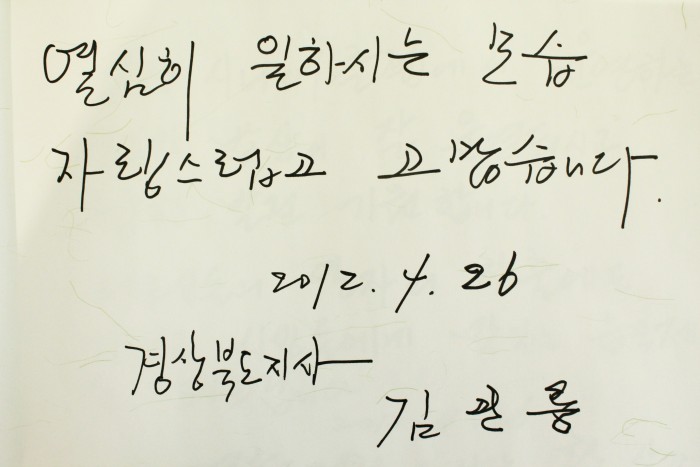 열심히 일하시는 모습
자랑스럽고 고맙습니다.
2012. 4. 26
경상북도지사
김관용